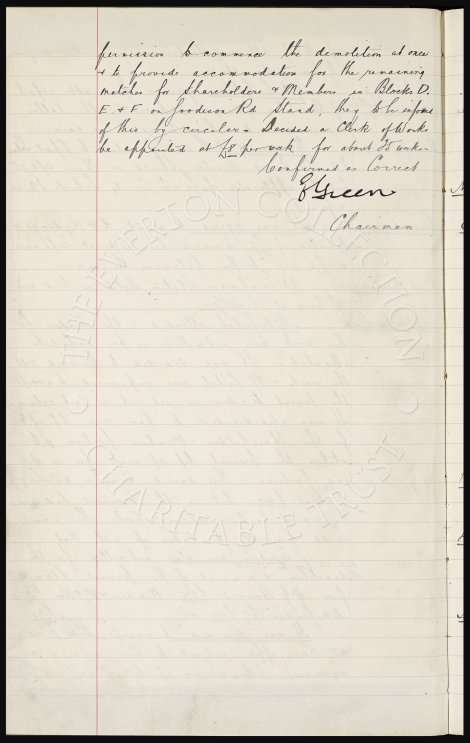 permission to commence the demolition at once
& to provide accommodation for the remaining
matches for Shareholders & Members in Blocks D.
E & F on Goodison Rd Stand, they to be informed
of this by circular - Decided a Clerk of Works
be appointed at £8 per week for about weeks -
Confirmed as Correct
E Green
Chairman
THE EVERTON COLLECTION
CHARITABLE TRUST